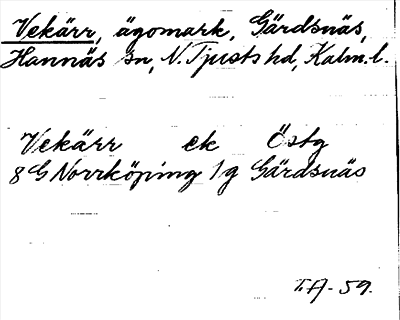 Vekärr, ägomark, Gärdsnäs,
Hannäs sn, N. Tjusts hd, Kalm. l.
Vekärr ek Östg
8G Norrköping 1g Gärdsnäs
T.A-59.